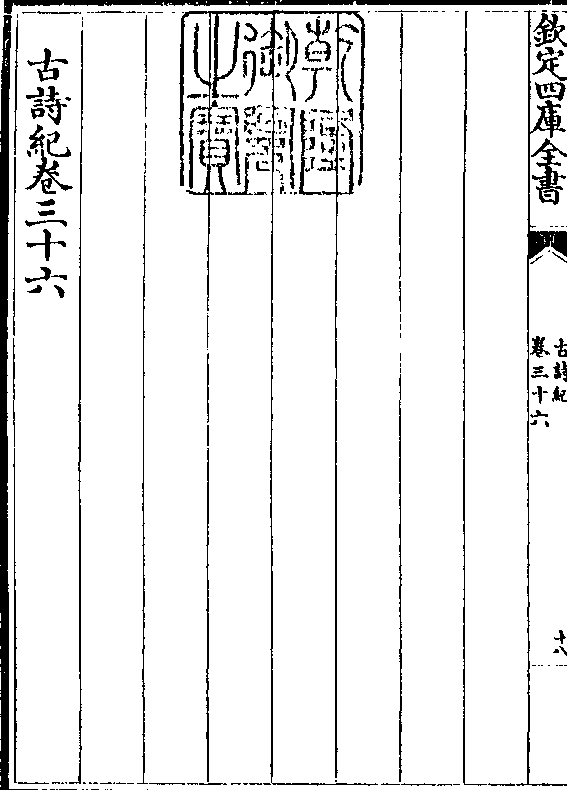 欽定四庫全書
古詩紀
卷三十六
十八
乾隆
御覽
之寶
古詩紀卷三十六